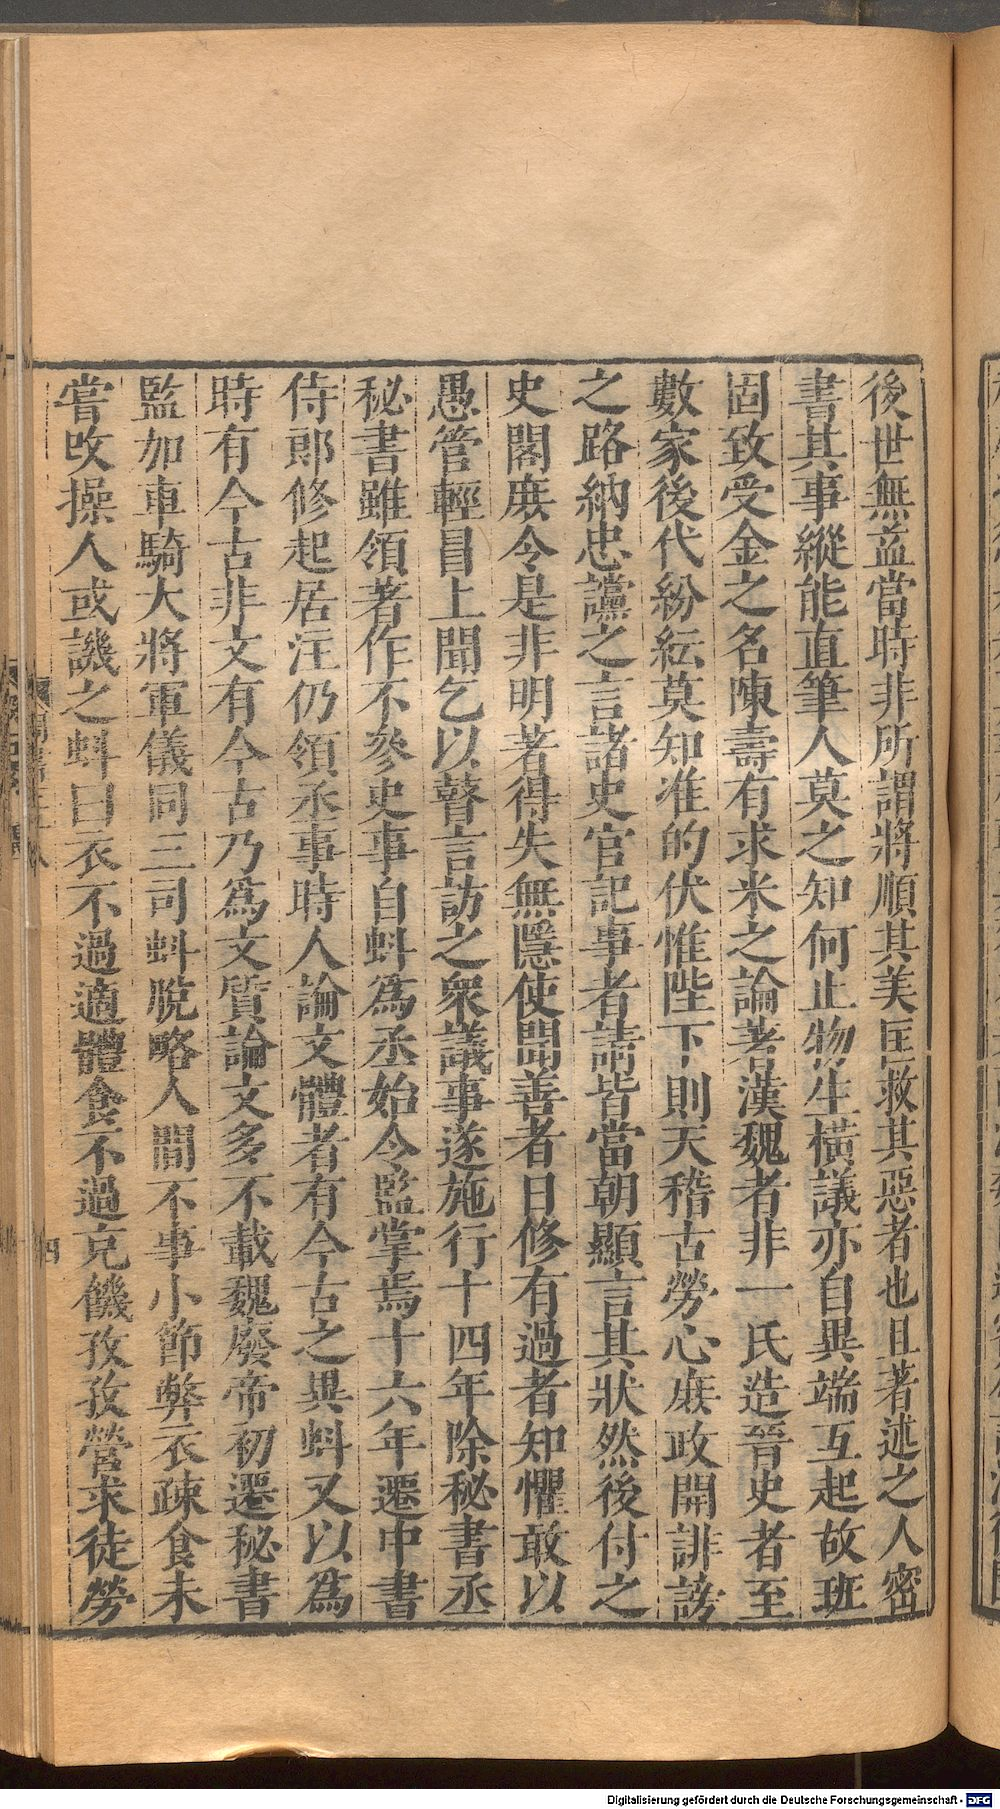 後世無益當時非所謂將順其美匡救其惡者也且著述之人密
書其事縱能直筆人莫之知何止物生橫議亦自異端互起故班
固致受金之名陳壽有求米之論著漢魏者非一氏造晉史者至
數家後代紛紜莫知准的伏惟陛下則天稽古勞心庶政開誹謗
之路納忠讜之言諸史官記事者請皆當朝顯言其狀然後付之
史閣庶令是非明著得失無隱使聞善者日修有過者知懼敢以
愚管輕冒上聞乞以瞽言訪之衆議事遂施行十四年除秘書丞
秘書雖領著作不參史事自蚪爲丞始今監掌焉十六年遷中書
侍郎修起居注仍領丞事時人論文體者有今古之異蚪又以爲
時有今古非文有今古乃爲文質論文多不載魏廢帝初遷秘書
監加車騎大將軍儀同三司蚪脫略人間不事小節弊衣疎食未
嘗改操人或譏之蚪曰衣不過適體食不過充饑孜孜營求徒勞
四
Digitalisierung gefördert durch die Deutsche Forschungsgemeinschaft - DFG